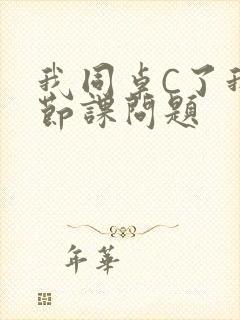 我同桌C了我
節課問題
年華